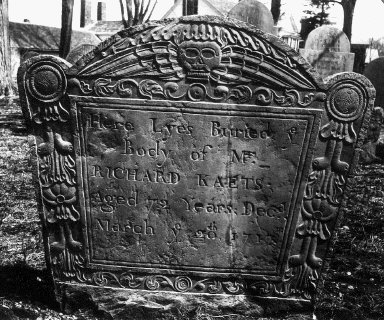 Here Lyes Buried yᵉ
Body of Mʳ
RICHARD KAETS
Aged 72 Years Decᵈ
March yᵉ